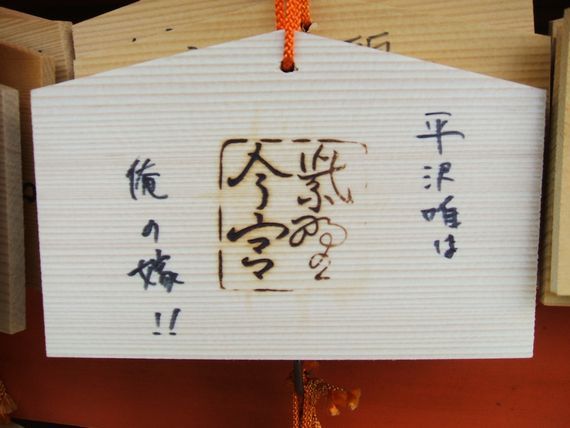 平沢唯は
紫野
今宮
俺の嫁!!